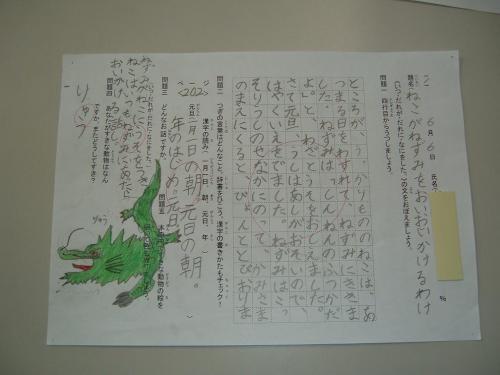 6月6日 氏名
題名 ねこがねずみをおいかけるわけ
(いつ・だれが・だれに・なにをした。)の文をおぼえましょう。
問題一 四行目からうつしましょう。
ところが、うっかりもののねこは、あ
つまる日をわすれて、ねずみにききま
した。ねずみは「しんねんのふつかだ
よ。」と、わざとうそをおしえました。
さて元旦、うしはあしがおそいので、
はやくいえをでました。ねずみはこっ
そりうしのせなかにのって、かみさま
のまえにくると、ぴょんととびおりま
問題二 つぎの言葉はどんなこと。辞書をひこう。漢字の書きかたもチェック！
漢字の読み 一月一日、朝、元日、年
ページ
<202>
元旦 一月一日の朝。元日の朝。
年のはじめ。元日。
問題三 どんなお話ですか。
いつ・だれが・だれに・なにをした。
ねずみがねこにうそをつき
ねこはいつもねずみにあったら
おいかける話し。
問題四 あなたがすきな動物はなん
ですか。またどうしてすき？
りゅう
問題五
動物の絵を
りゅう